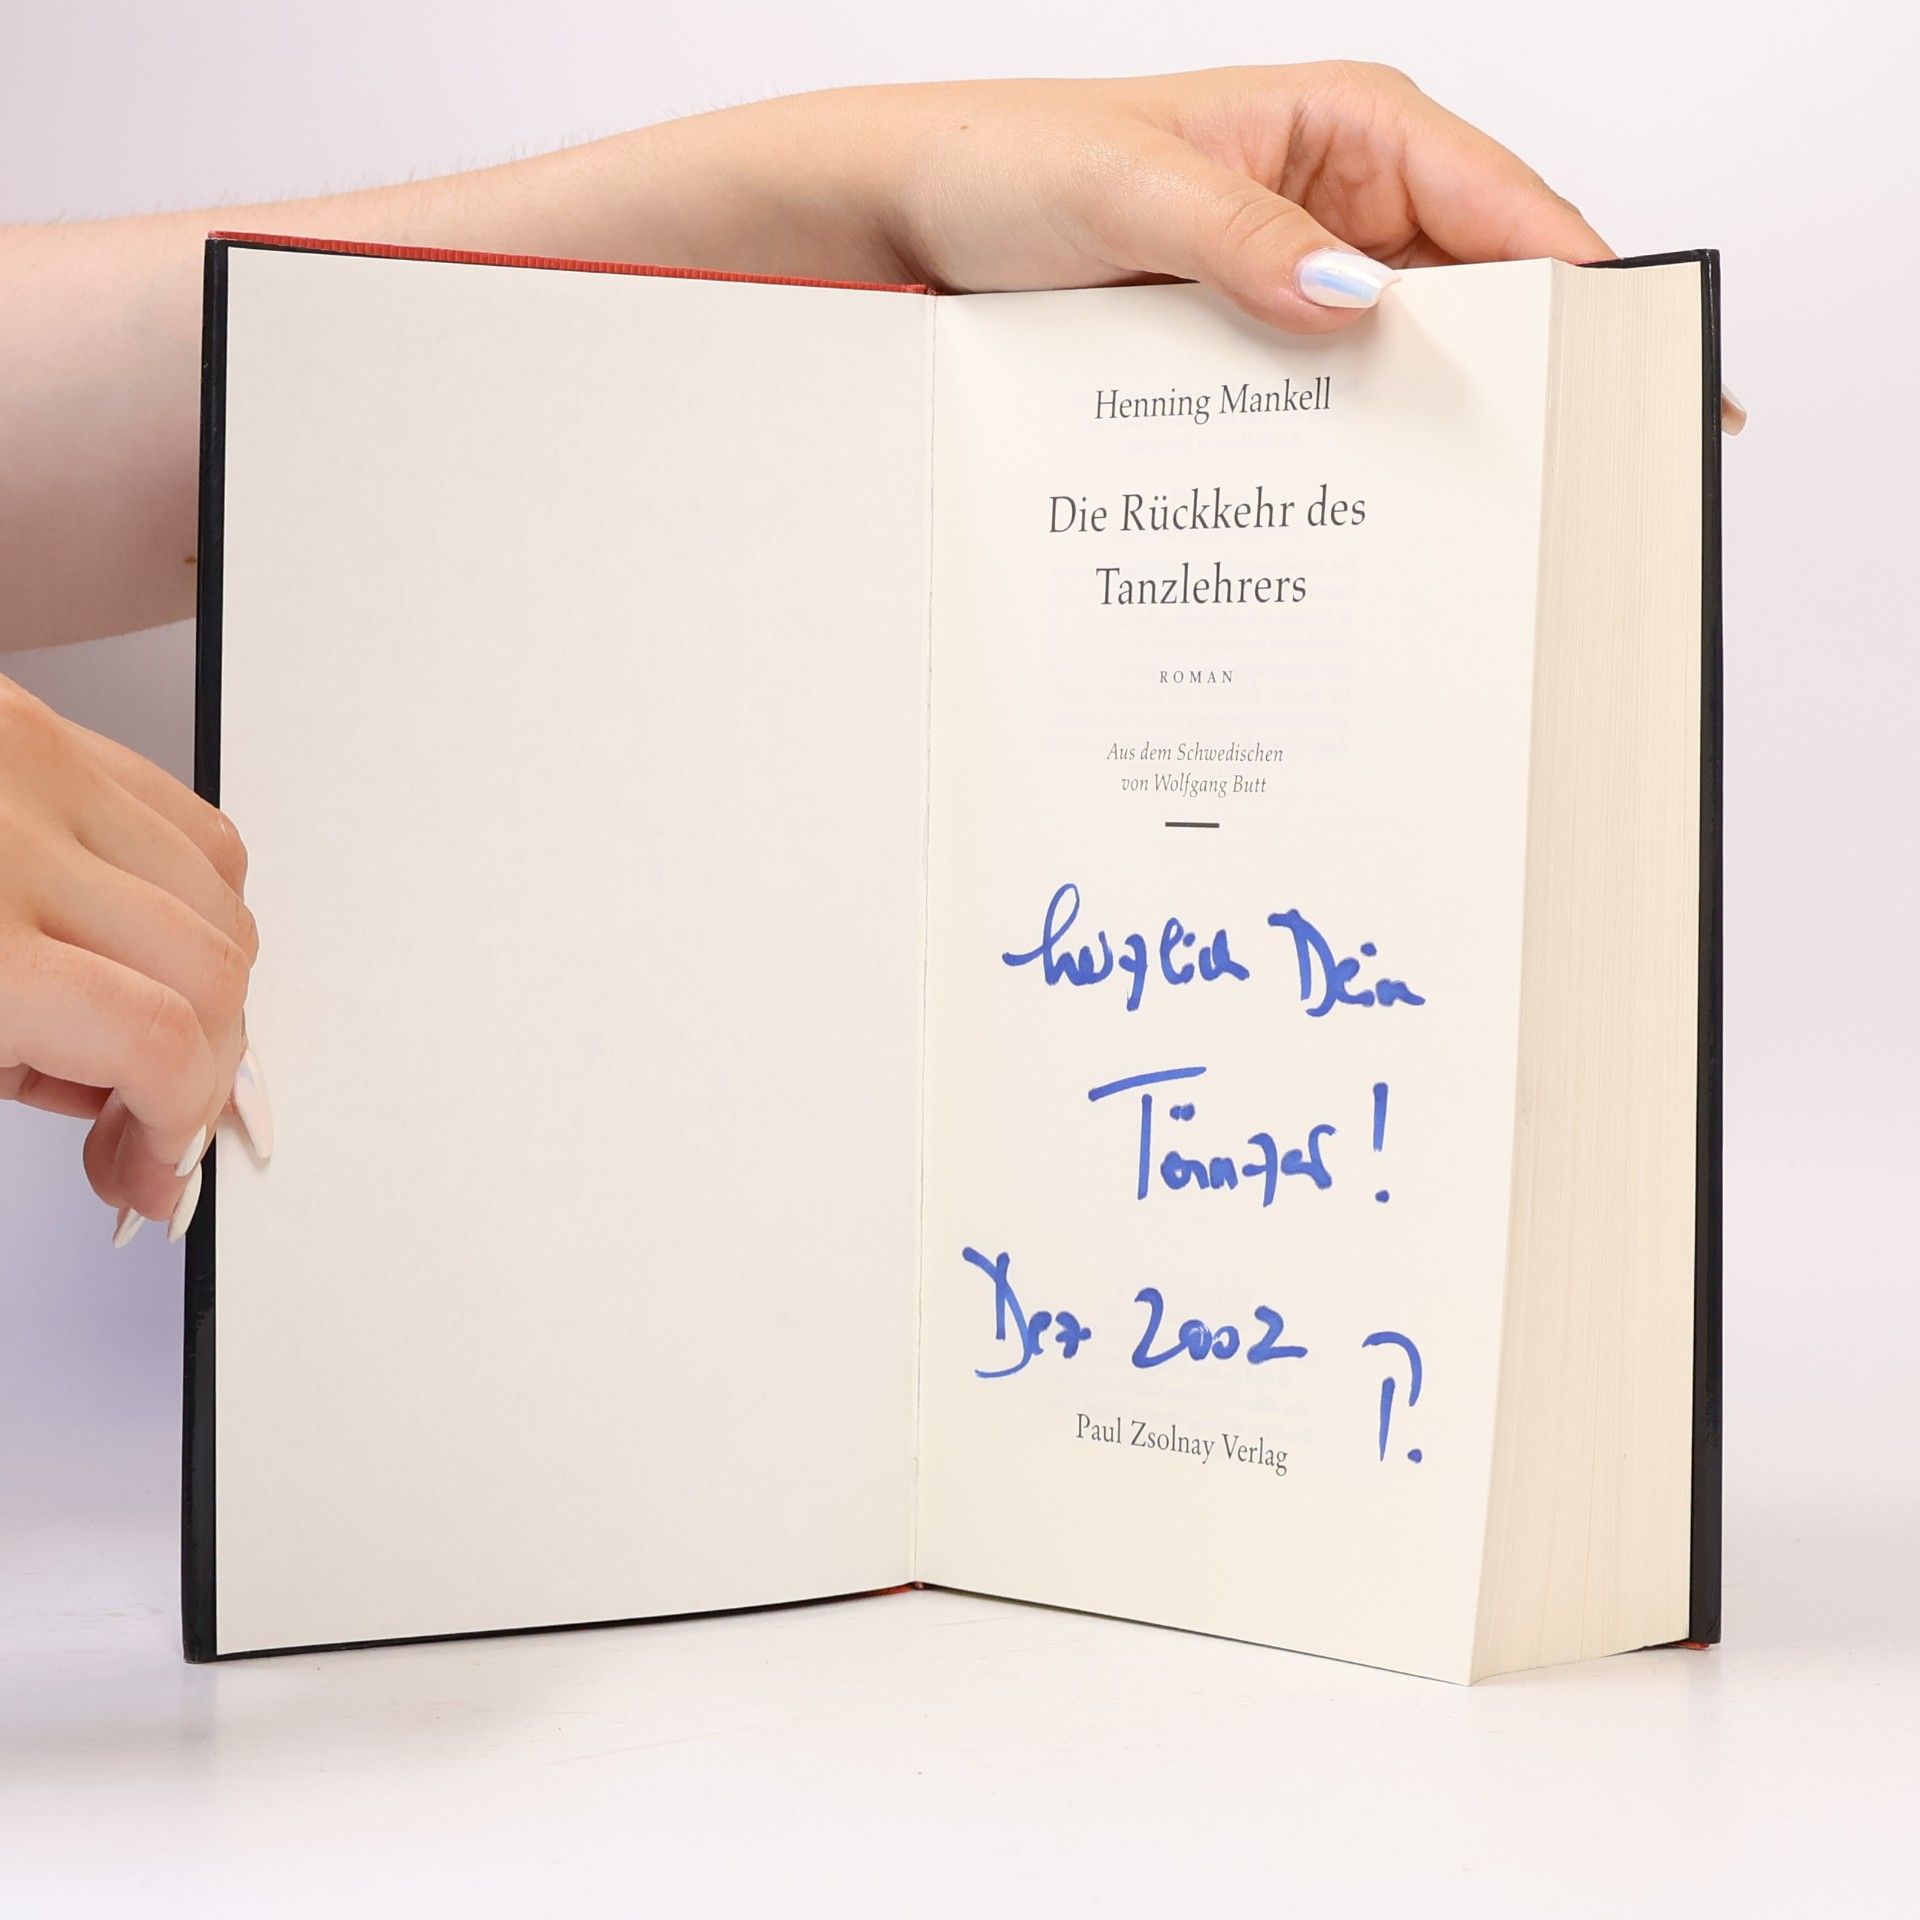 Henning Mankell
Die Rückkehr des
Tanzlehrers
ROMAN
Aus dem Schwedischen
von Wolfgang Butt
herzlich Dein
!
Dez 2002 P.
Paul Zsolnay Verlag